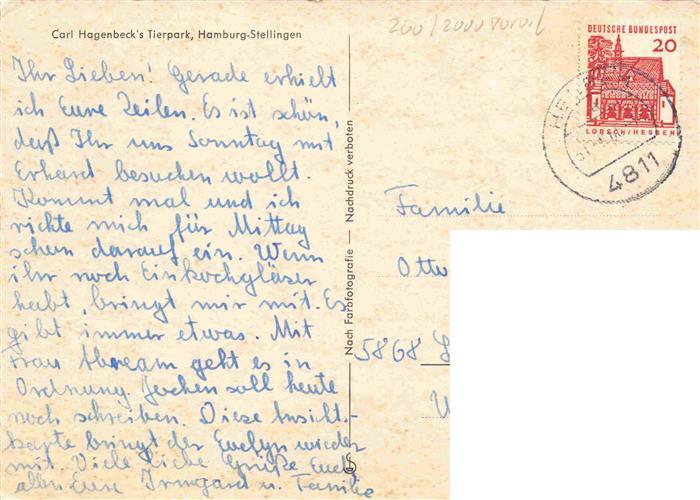 Carl Hagenbeck's Tierpark, Hamburg-Stellingen
Ihr Lieben! Gerade erhielt
ich Eure Zeilen. Es ist schön,
daß Ihr uns Sonntag mit
Erhard besuchen wollt.
Kommt mal und ich
richte mich für Mittag
schon darauf ein. Wenn
ihr noch Einkochgläser
habt, bringt mir mit. Es
gibt immer etwas. Mit
Frau geht es in
Ordnung. Jochen soll heute
noch schreiben. Diese Ansichts-
karte bringt der Evelyn wieder
mit. Viele liebe Grüße Euch
allen Eure Irmgard u. Familie
Nach Farbfotografie — Nachdruck verboten
200/2000
DEUTSCHE BUNDESPOST
20
LORSCH/HESSEN
4811
Familie
Otto
5868